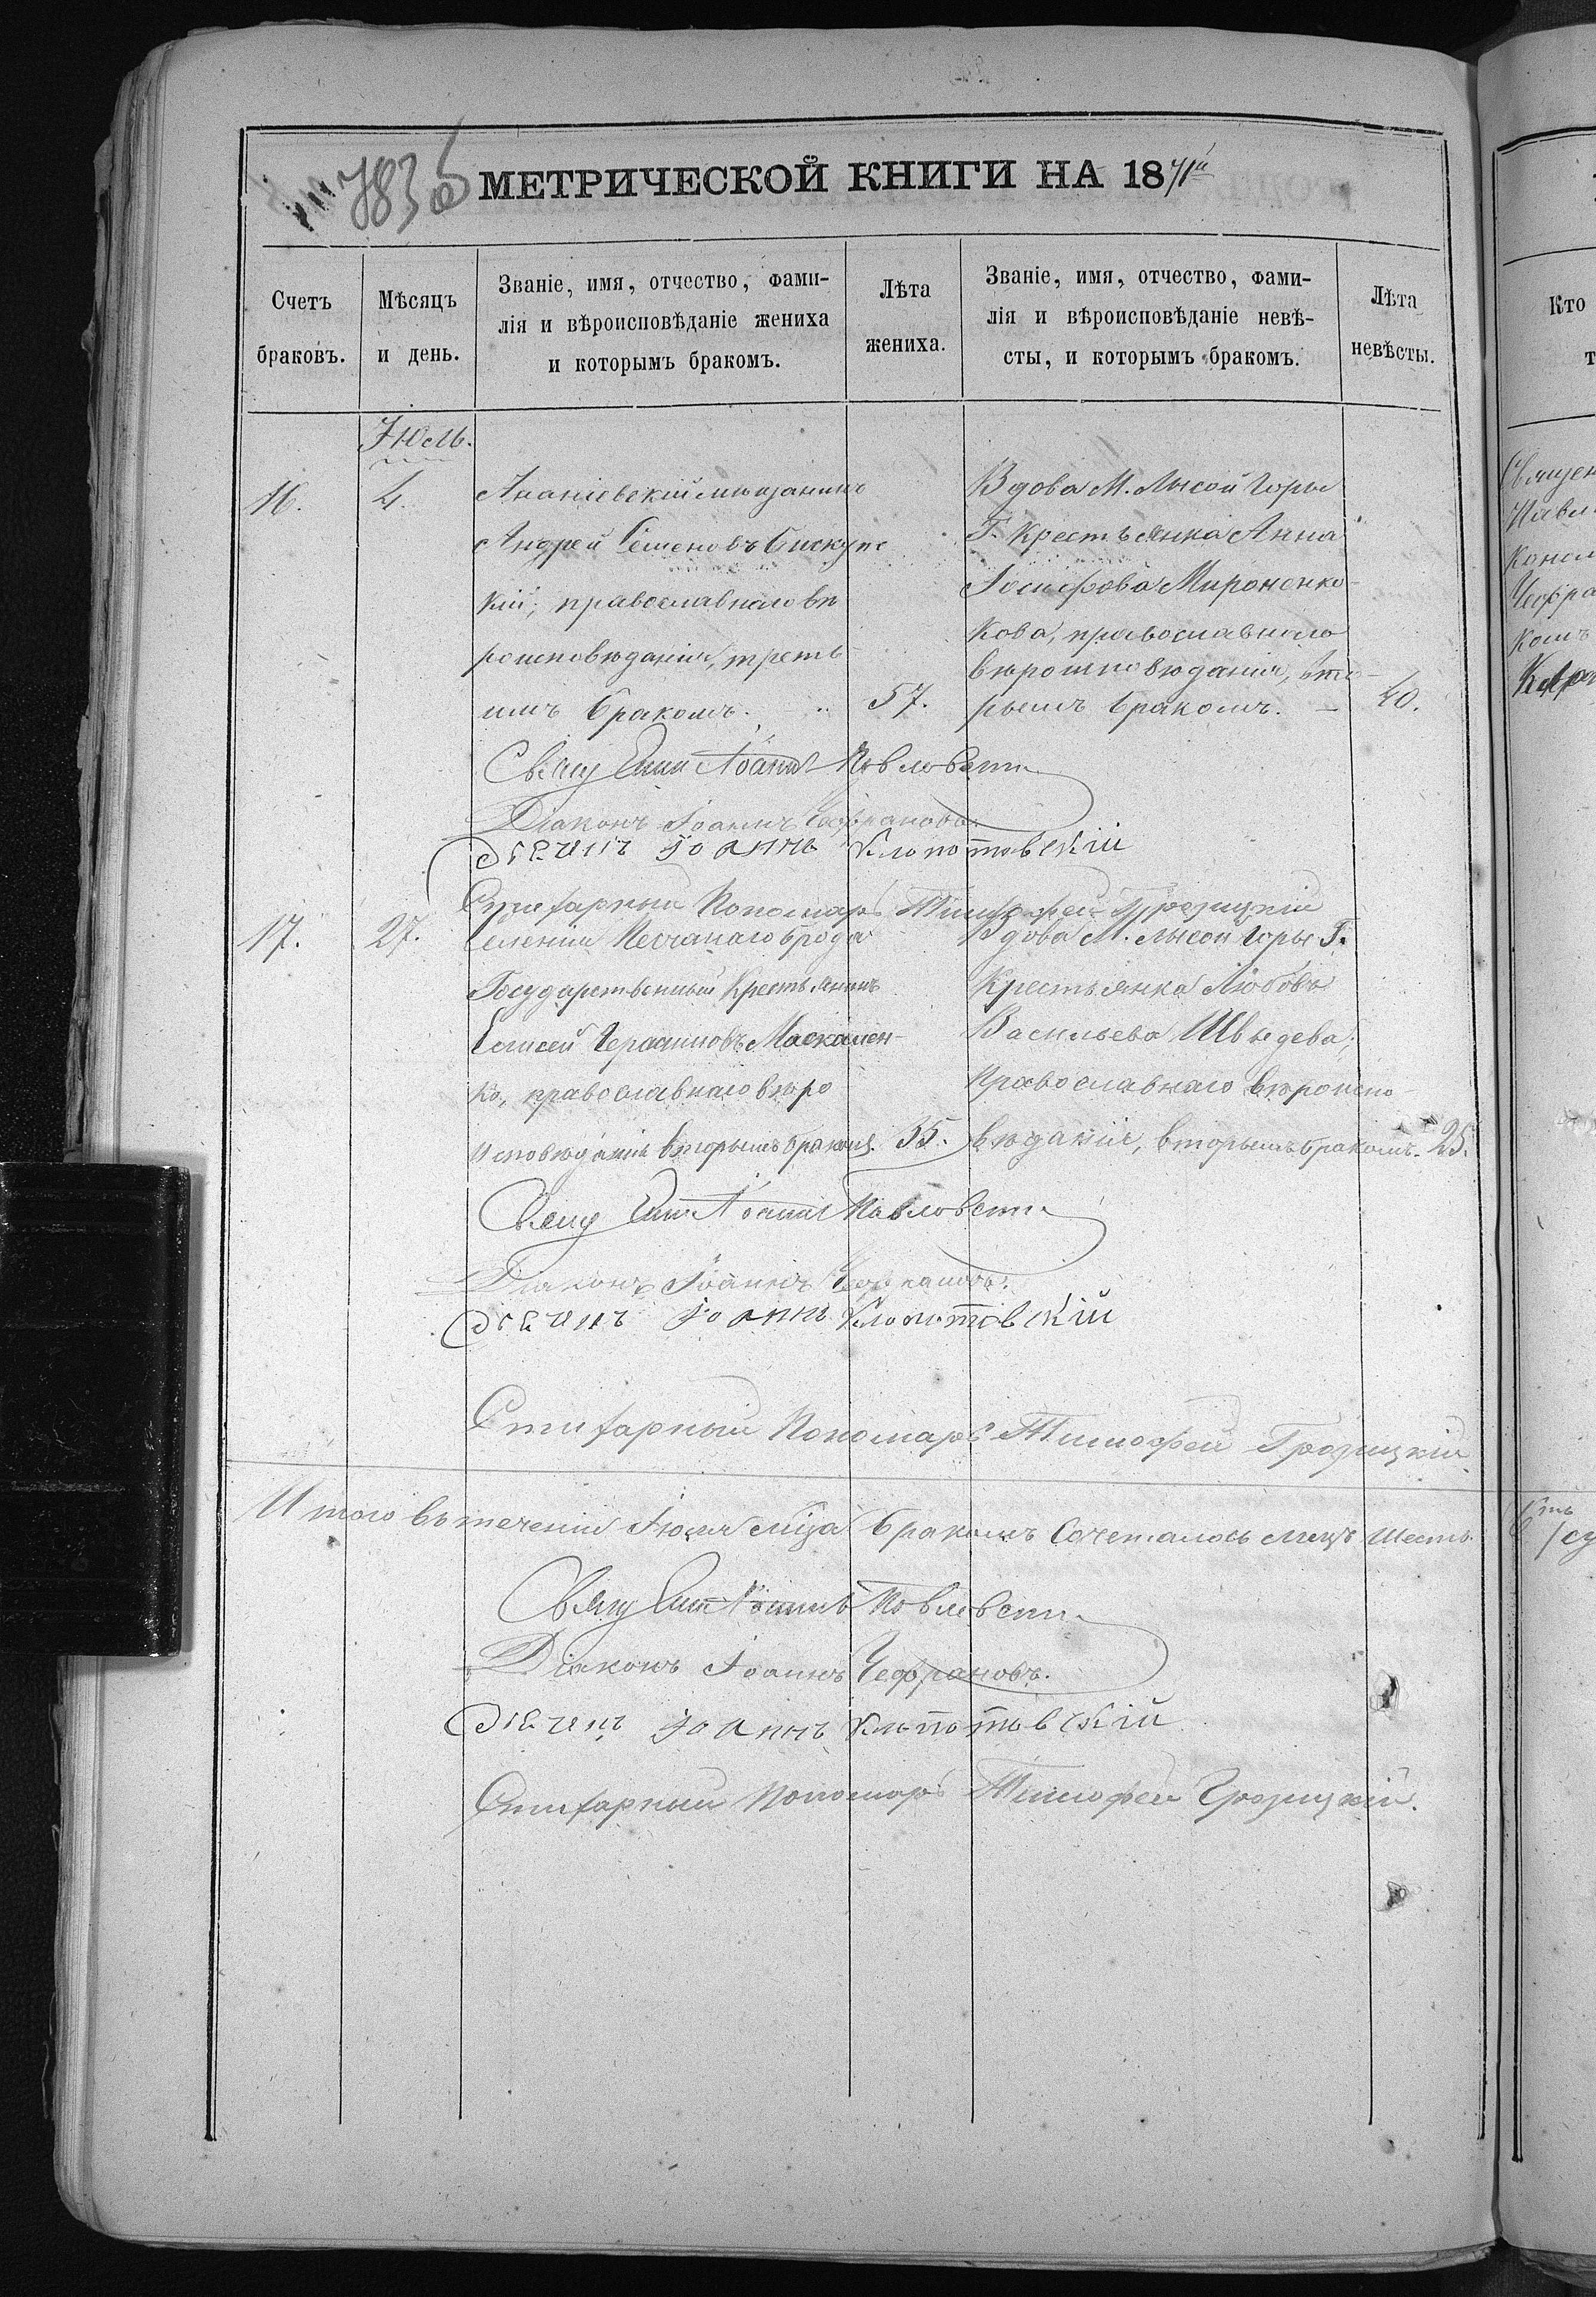 783 об
МЕТРИЧЕСКОЙ КНИГИ НА 1871й
Счетъ браковъ.
Мѣсяцъ и день.
Званіе, имя, отчество, фами-
лія и вѣроисповѣданіе жениха
и которымъ бракомъ.
Лѣта жениха.
Званіе, имя, отчество, фами-
лія и вѣроисповѣданіе невѣ-
сты, и которымъ бракомъ.
Лѣта невѣсты.
Іюль.
16.
4.
Ананіевскій мѣщанинъ
Андрей Семеновъ Бискупс
кій, православнаго вѣ
роисповѣданія, треть
имъ бракомъ.
57.
Вдова М. Лысой Горы
Г. Крестьянка Анна
Іосифова Мироненко-
кова, православнаго
вѣроисповѣданія, вто-
рымъ бракомъ. —
40.
Іоаннъ Павловски
Діаконъ Іоаннъ Чефрановъ.
Дьячикъ Іоаннъ Клопотовскій
Стихарный Пономарь Тимофей Грозицкій
17.
27.
Селенія Песчанаго брода
Государственный Крестьянинъ
Елисей Герасимовъ Маскален-
ко, православнаго вѣро
исповѣданія вторымъ бракомъ.
35.
Вдова М. Лысой Горы Г.
Крестьянка Любовь
Васильева Швыдева,
Православнаго вѣроиспо-
вѣданія, вторымъ бракомъ.
25.
Іоаннъ Павловски
Діаконъ Іоаннъ Чефрановъ.
Дьячикъ Іоаннъ Клопотовскій
Стихарный Пономарь Тимофей Грозицкій
Итого въ теченіи Іюля мѣца бракомъ Сочеталось лицъ шесть.
Іоаннъ Павловски
Діаконъ Іоаннъ Чефрановъ.
Дьячикъ Іоаннъ Клопотовскій
Стихарный Пономарь Тимофей Грозицкій.
Кто